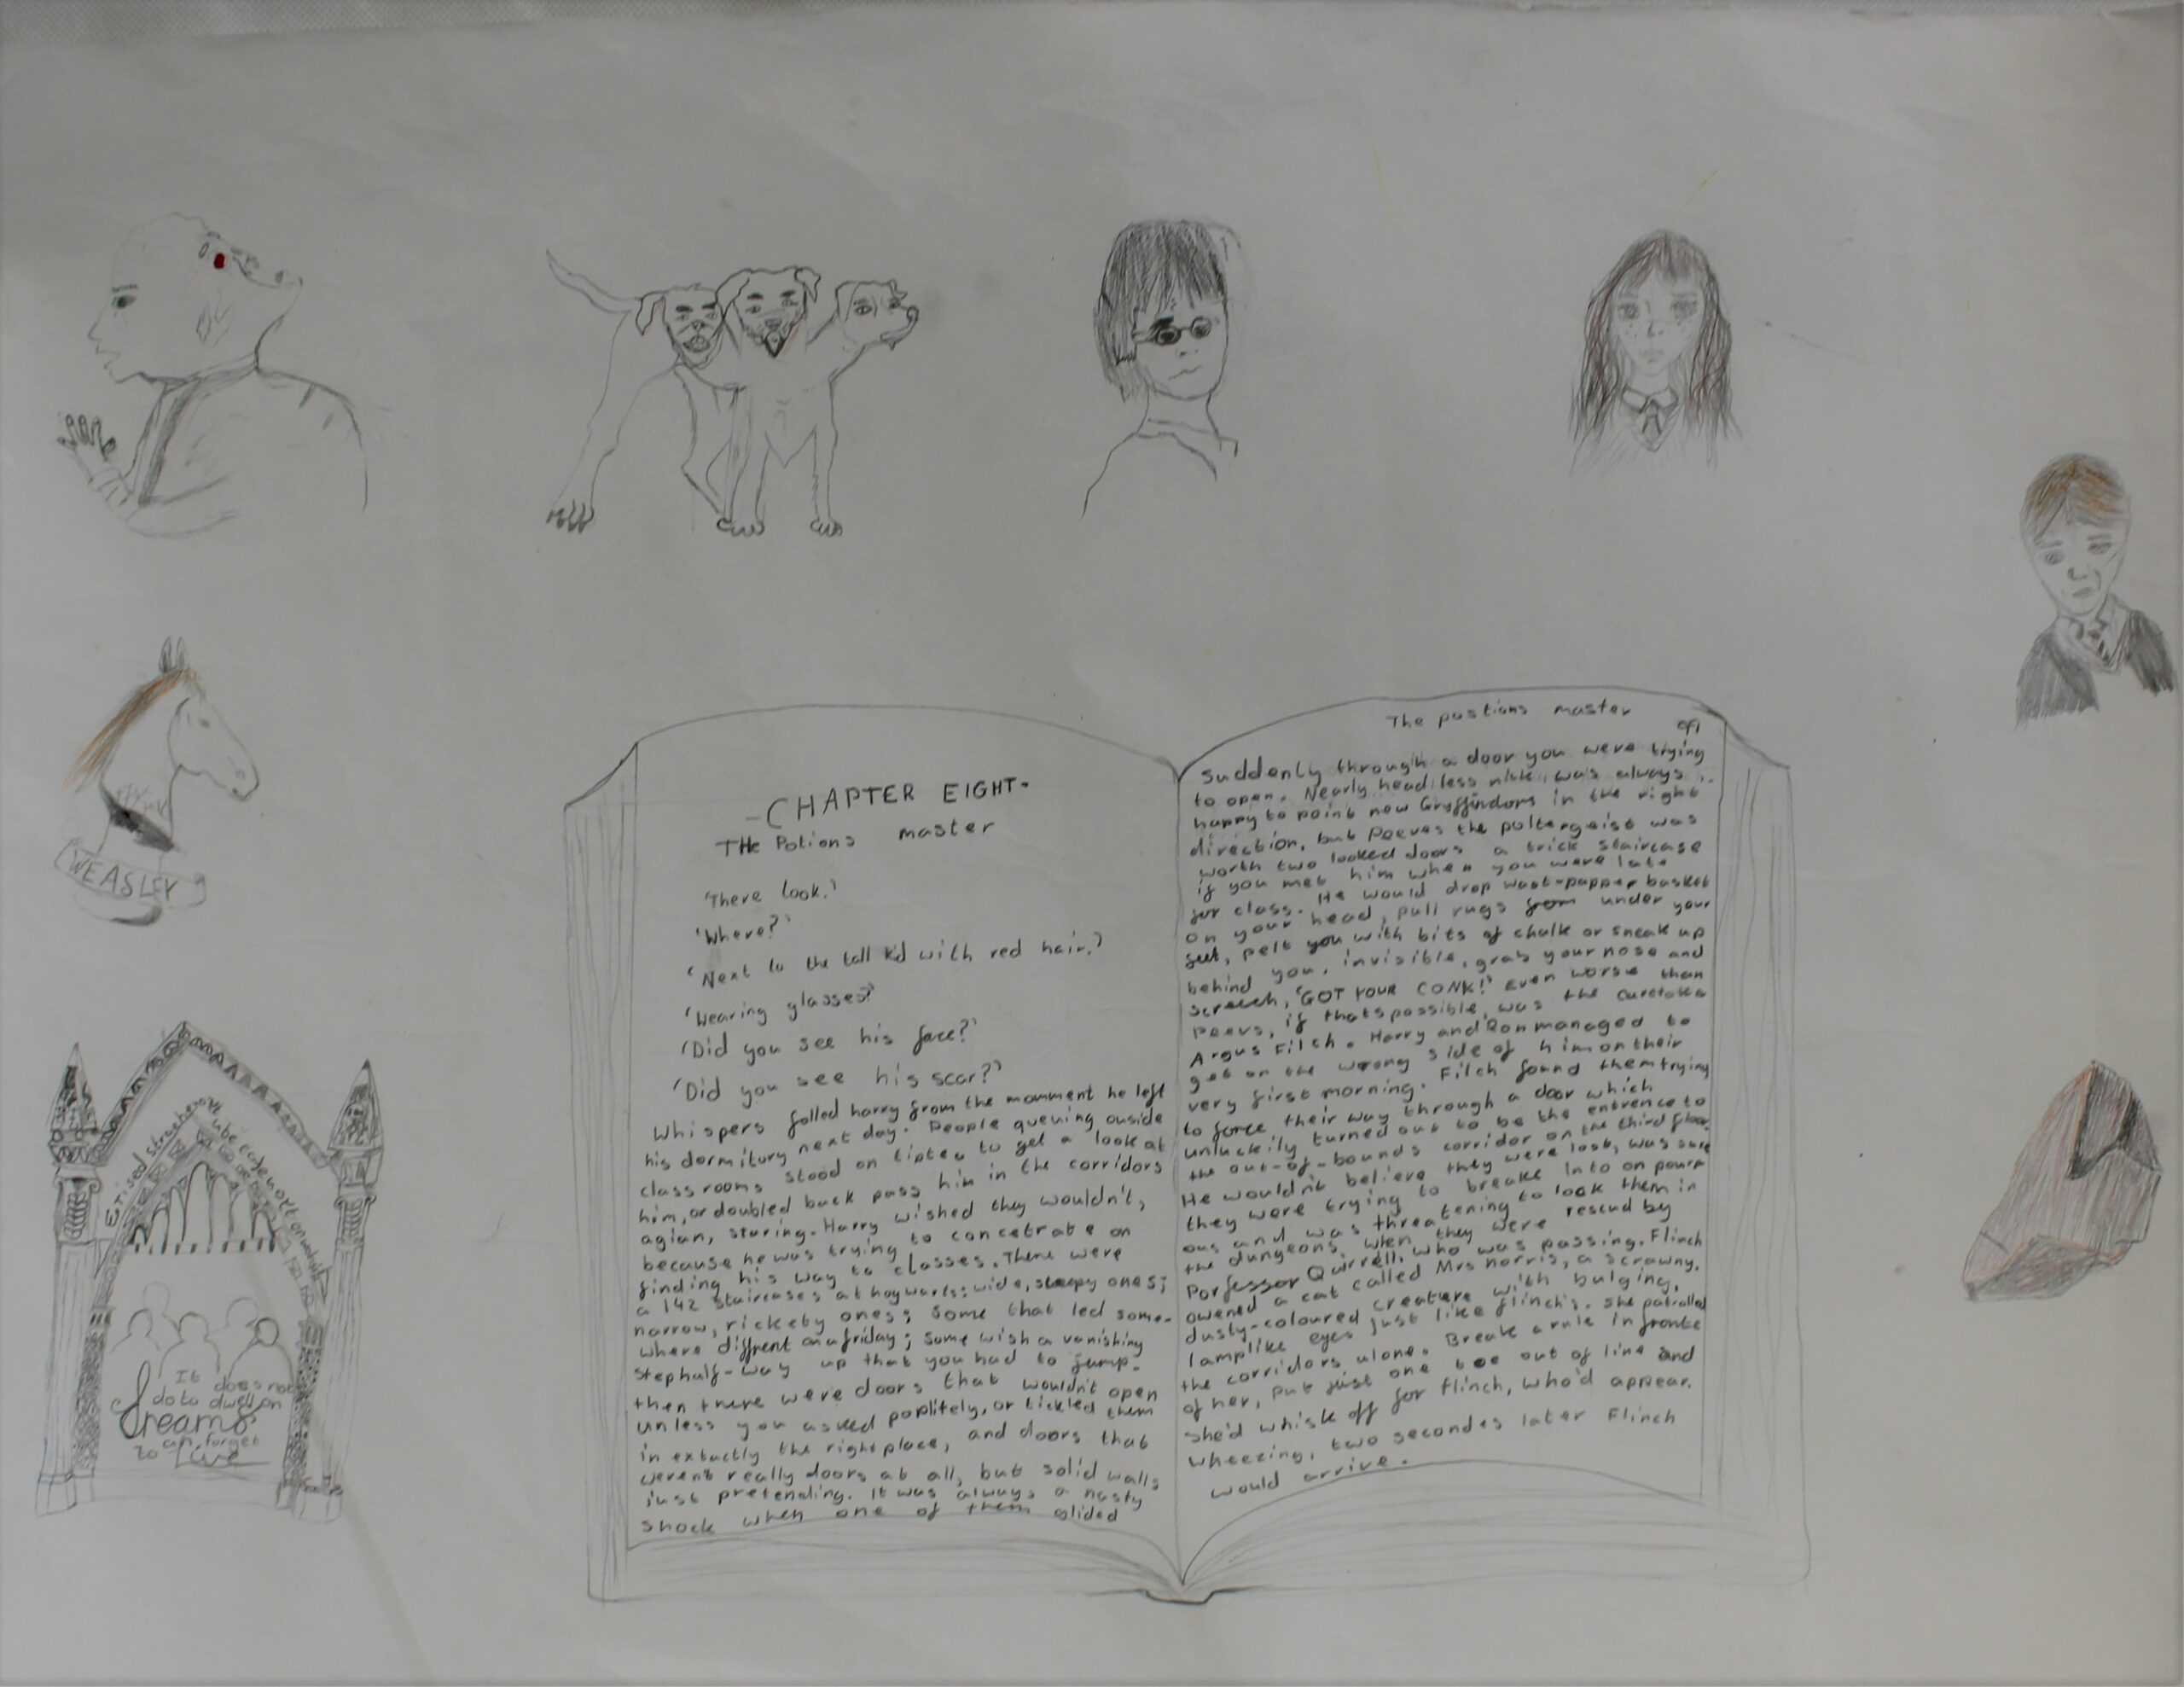 WEASLEY
Erised stra ehru oyt ube cafru oyt on wohsi
It does not
do to dwell on
Dreams
and forget
to Live
-CHAPTER EIGHT-
THe Potions master
'There look.'
'Where?'
'Next to the tall kid with red hair.'
'Wearing glasses?'
'Did you see his face?'
'Did you see his scar?'
Whispers folled harry from the momment he left
his dormitury next day. People queving ouside
classrooms stood on tipteo to get a look at
him, or doubled back pass him in the corridors
agian, staring. Harry wished they wouldn't,
because he was trying to concetrate on
finding his way to classes. There were
a 142 staircases at hogwarts: wide, sleepy ones;
narrow, rickety ones; some that led some-
where diffrent on a friday; some wish a vanishing
step half-way up that you had to jump.
then there were doors that wouldn't open
unless you asked poplitely, or tickled them
in extactly the right place, and doors that
weren't really doors at all, but solid walls
just pretending. It was always a nasty
shock when one of them glided
The postions master 99
suddenly through a door you were trying
to open. Nearly headless nick was always
happy to point new Gryffindors in the right
direction, but Peeves the poltergeist was
worth two locked doors a trick staircase
if you met him when you were late
for class. He would drop wast-papper basket
on your head, pull rugs from under your
feet, pelt you with bits of chalk or sneak up
behind you, invisible, grab your nose and
screech, 'GOT YOUR CONK!' Even worse than
peevs, if thats possible, was the caretaker
Argus Filch. Harry and Ron managed to
get on the wrong side of him on their
very first morning. Filch found them trying
to force their way through a door which
unluckily turned out to be the entrence to
the out-of-bounds corridor on the third floor.
He wouldn't believe they were lost, was sure
they were trying to breake into on pourp
ous and was threatening to lock them in
the dungeons, when they were rescud by
Porfessor Quirrell, who was passing. Flinch
owened a cat called Mrs norris, a scrawny,
dusty-coloured creature with bulging,
lamplike eyes just like flinch's. she patrolled
the corridors alone. Break a rule in fronte
of her, put just one toe out of line and
she'd whisk off for flinch, who'd appear.
wheezing, two secondes later Flinch
would arrive.